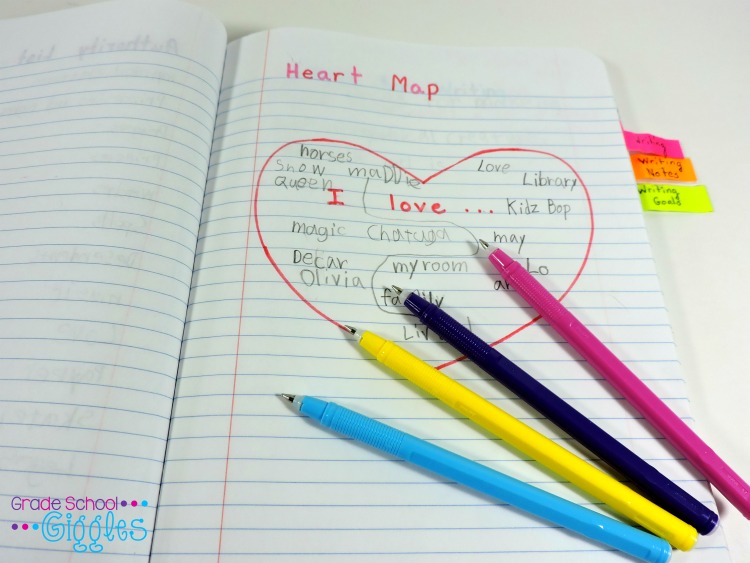 Heart Map
horses
Snow Queen
maDDie
Love
Library
I love ...
Kidz Bop
magic
Chatuga
may
Decar
Olivia
my room
Lo
family
writing
Writing Notes
Writing Goals
Grade School
Giggles